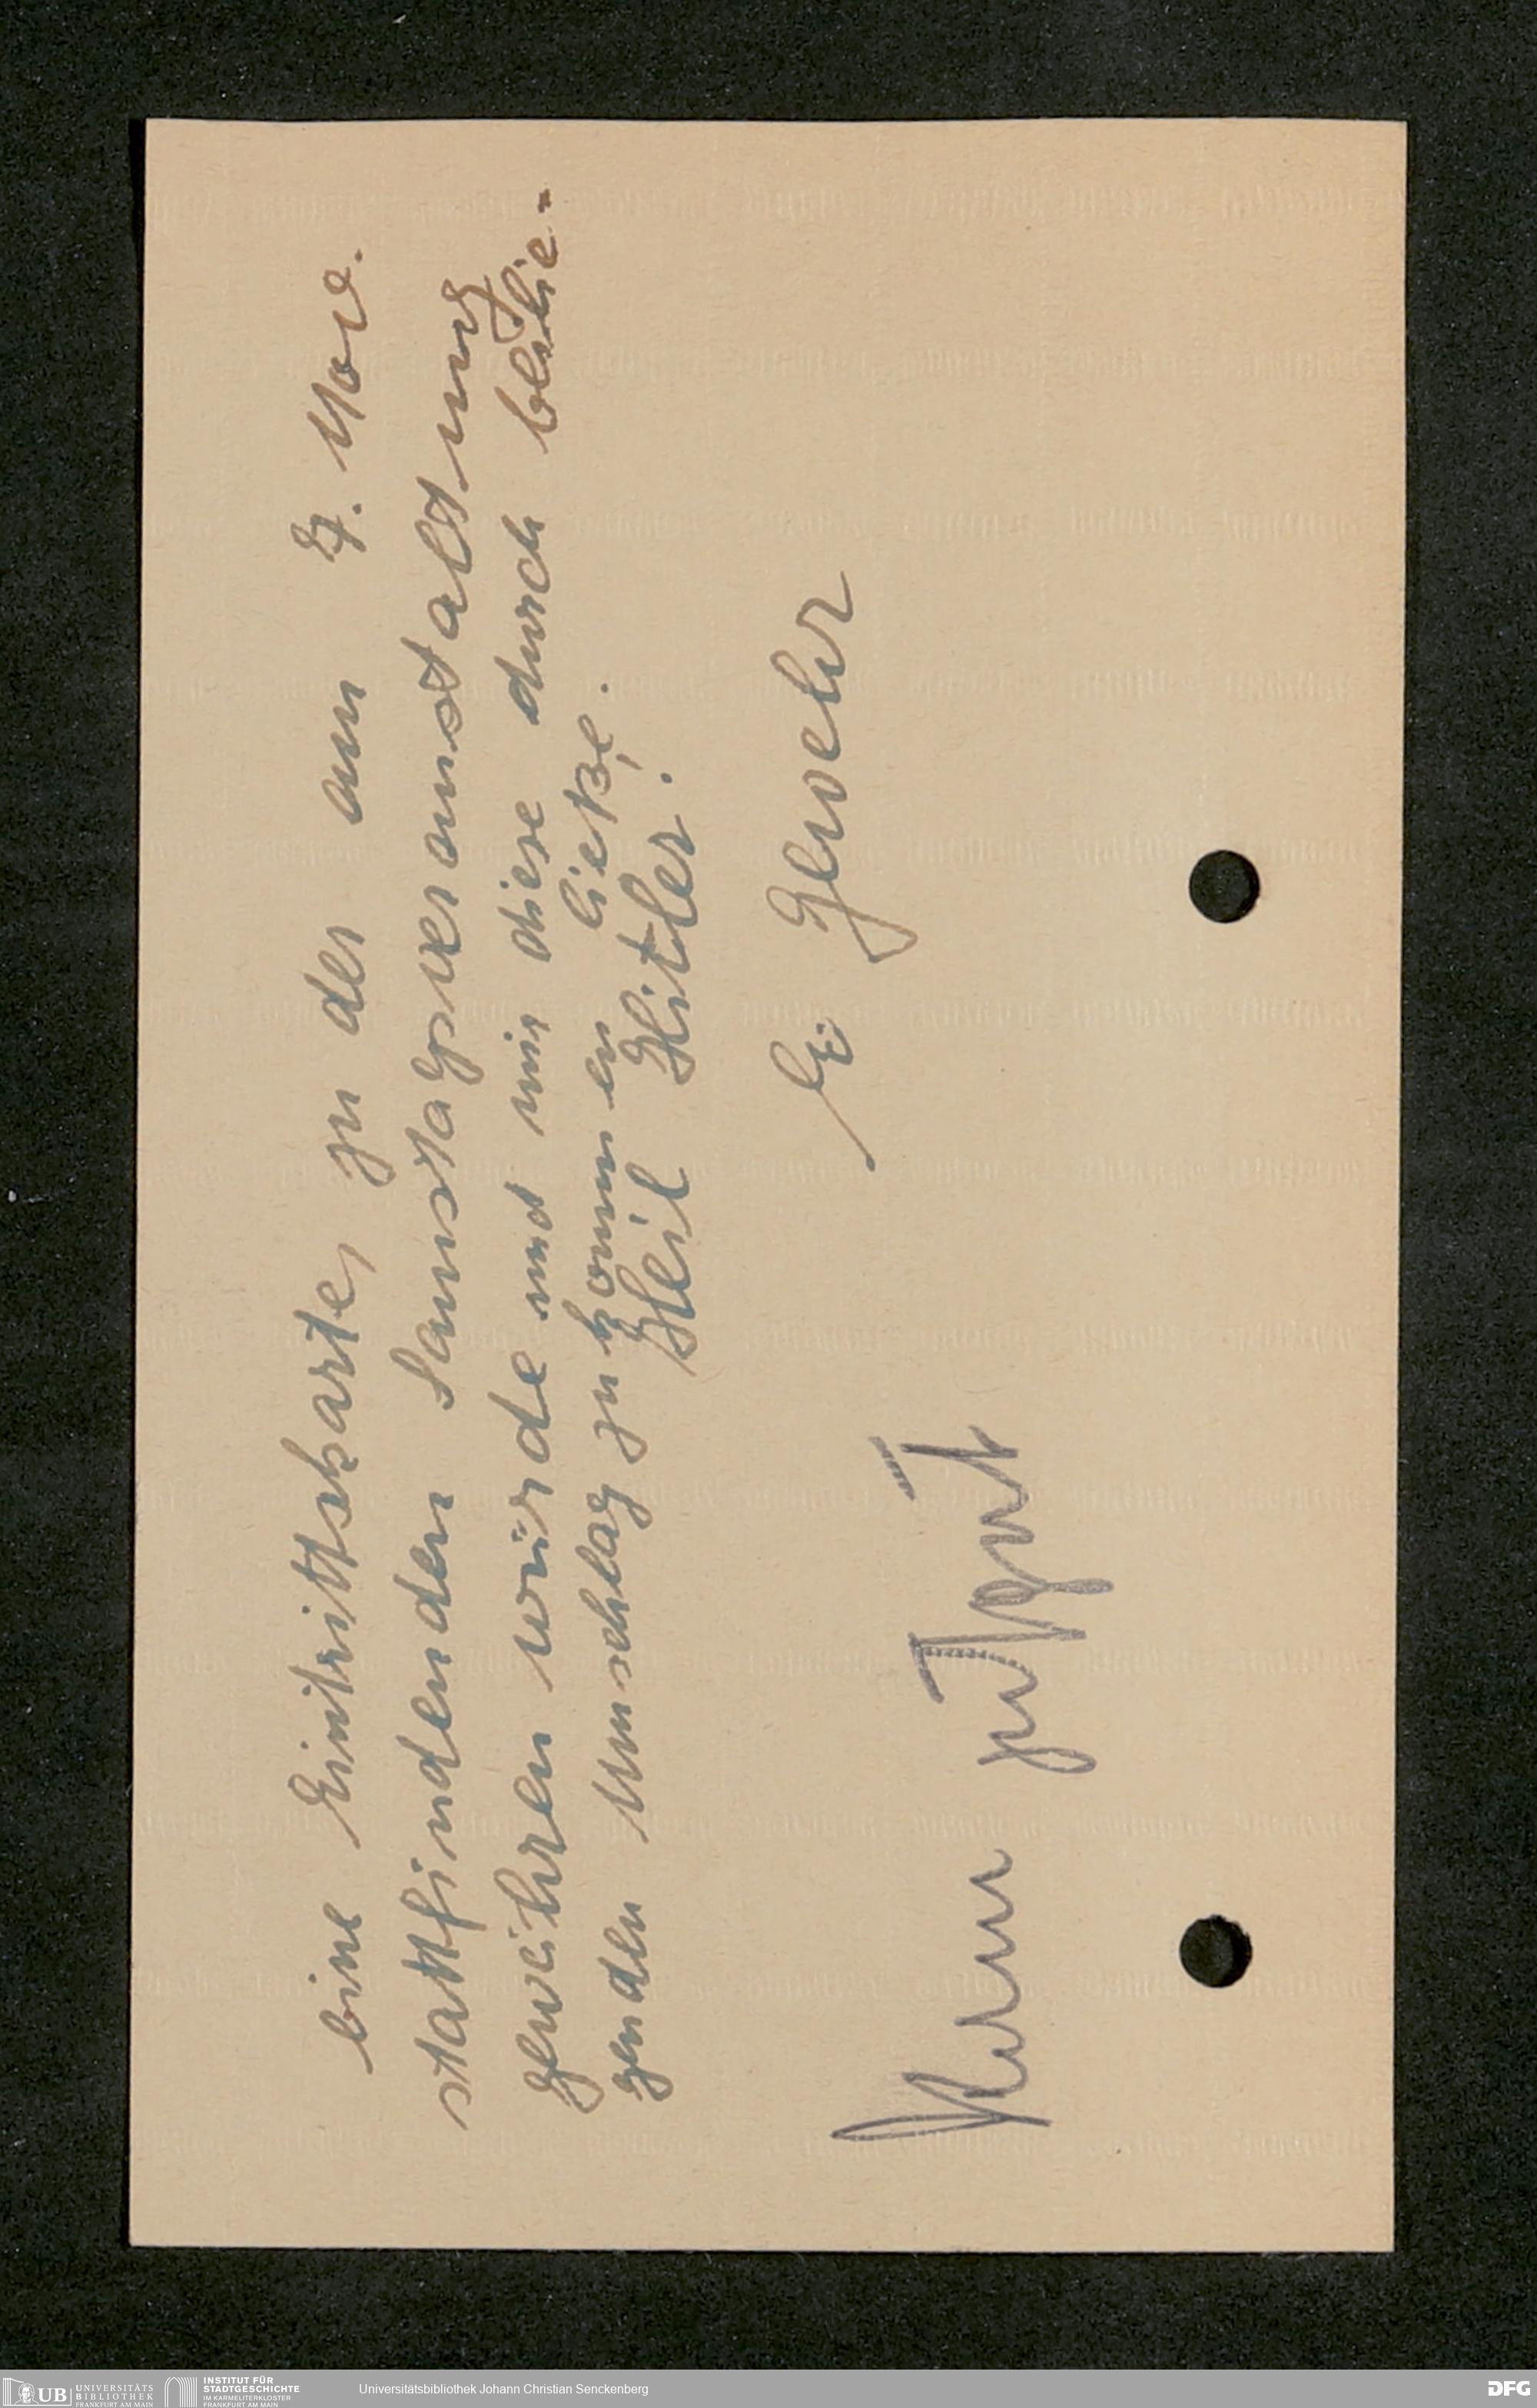 eine Eintrittskarte, zu der am 7. Nov.
stattfindenden Samstagsveranstaltung
gewähren würde und mir diese durch beilie-
genden Umschlag zukommen ließe.
Heil Hitler!
E. Gewehr
UB UNIVERSITÄTS
BIBLIOTHEK
FRANKFURT AM MAIN
INSTITUT FÜR
STADTGESCHICHTE
IM KARMELITERKLOSTER
FRANKFURT AM MAIN
Universitätsbibliothek Johann Christian Senckenberg
DFG